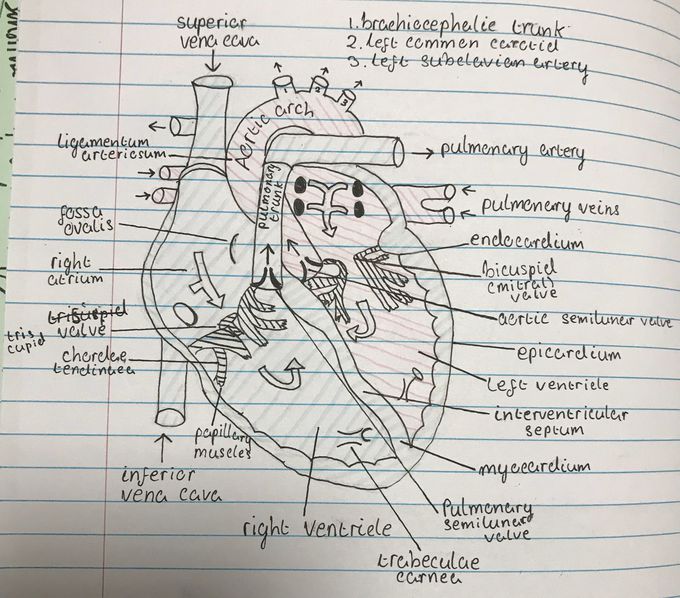 superior
vena cava
1. brachiocephalic trunk
2. left common carotid
3. left subclavian artery
1
2
3
Aortic arch
ligamentum
arteriosum
pulmonary artery
pulmonary
trunk
pulmonary veins
fossa
ovalis
endocardium
right
atrium
bicuspid
(mitral)
valve
trisuspid
valve
tris
cupid
aortic semilunar valve
chordae
tendinaea
epicardium
left ventricle
interventricular
septum
papillary
muscles
myocardium
inferior
vena cava
right ventricle
Pulmonary
semilunar
valve
trabeculae
carnea